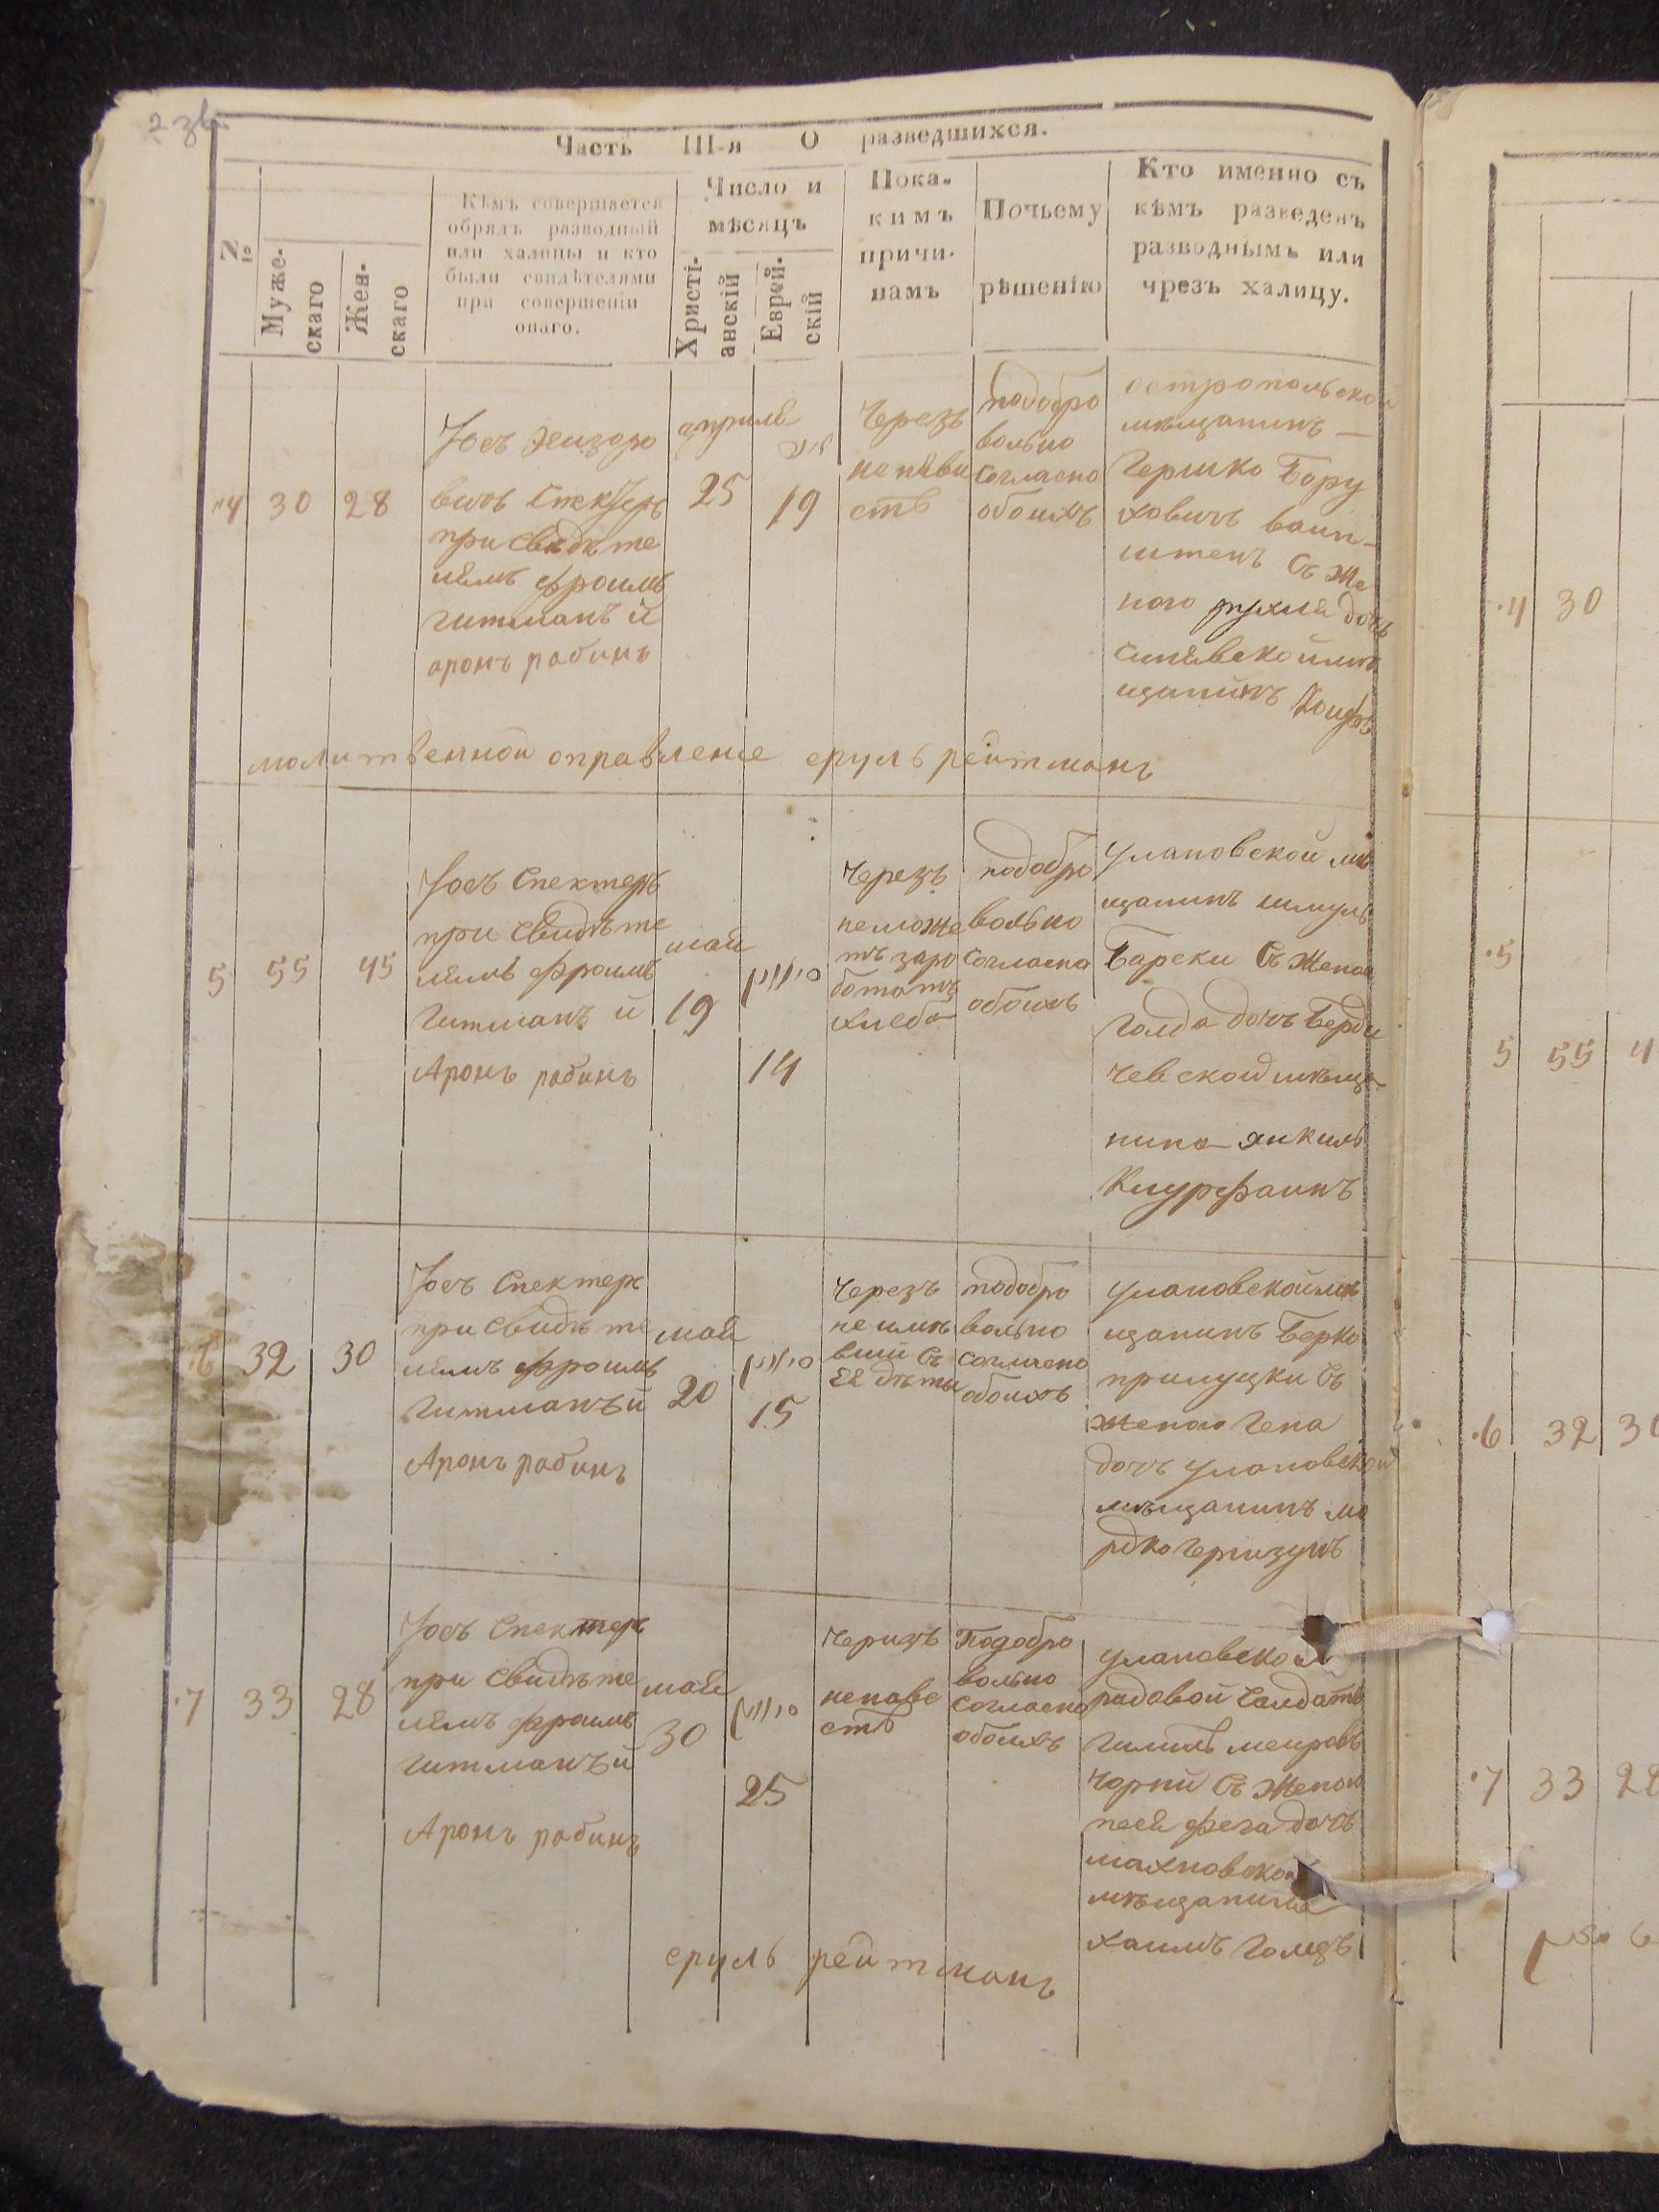 Часть III-я О разведшихся.
№
Муже-
скаго
Жен-
скаго
Кѣмъ совершается
обрядъ разводный
или халицы и кто
были свидѣтелями
при совершеніи
онаго.
Число и
мѣсяцъ
Христі-
анскій
Еврей-
скій
Пока-
кимъ
причи-
намъ
Почьему
рѣшенію
Кто именно съ
кѣмъ разведенъ
разводнымъ или
чрезъ халицу.
4
30
28
Іосъ
вичъ Спектеръ
при свидѣте
лямъ фроимъ
гитманъ й
аронъ рабинъ
априля
25
19
Черезъ
ненави
ств
подобро
вольно
согласно
обоихъ
остропольской
мещанинъ —
Гершко Бору
ховичъ ваин-
штенъ съ же
ною рухля дочь
синявскоймѣ
щанинъ
молитвенной оправление сруль рейтманъ
5
55
45
Іосъ Спектеръ
при свидѣте
лямъ фроимъ
гитманъ й
Аронъ рабинъ
май
19
סיון
14
Черезъ
неможе
тъ заро
ботатъ
хлеба
подобро
вольно
согласна
обоихъ
улановской мѣ
щанинъ шмуль
Барски съ женою
голда дочъ Берди
чевской мѣща
нина янкиль
Кнурфаинъ
6
32
30
Іосъ Спектеръ
при свидѣте
лямъ фроимъ
гитманъй
Аронъ рабинъ
май
20
סיון
15
Черезъ
не имѣ
вши съ
ея дѣты
подобро
вольно
согласно
обоихъ
улановскоймѣ
щанинъ Берко
прилуцки съ
женою гена
дочъ улановской
мѣщанинъ мо
рдко
7
33
28
Іосъ Спектеръ
при свидѣте
лямъ фроимъ
гитманъй
Аронъ рабинъ
май
30
סיון
25
Черизъ
ненаве
ств
Подобро
вольно
согласно
обоихъ
улановской
радовой салдатъ
меировъ
Чорни съ женою
песя фега дочъ
махновской
мѣщанина
хаимъ
сруль рейтманъ
4 30
5
5 55 4
6 32 30
7 33 28